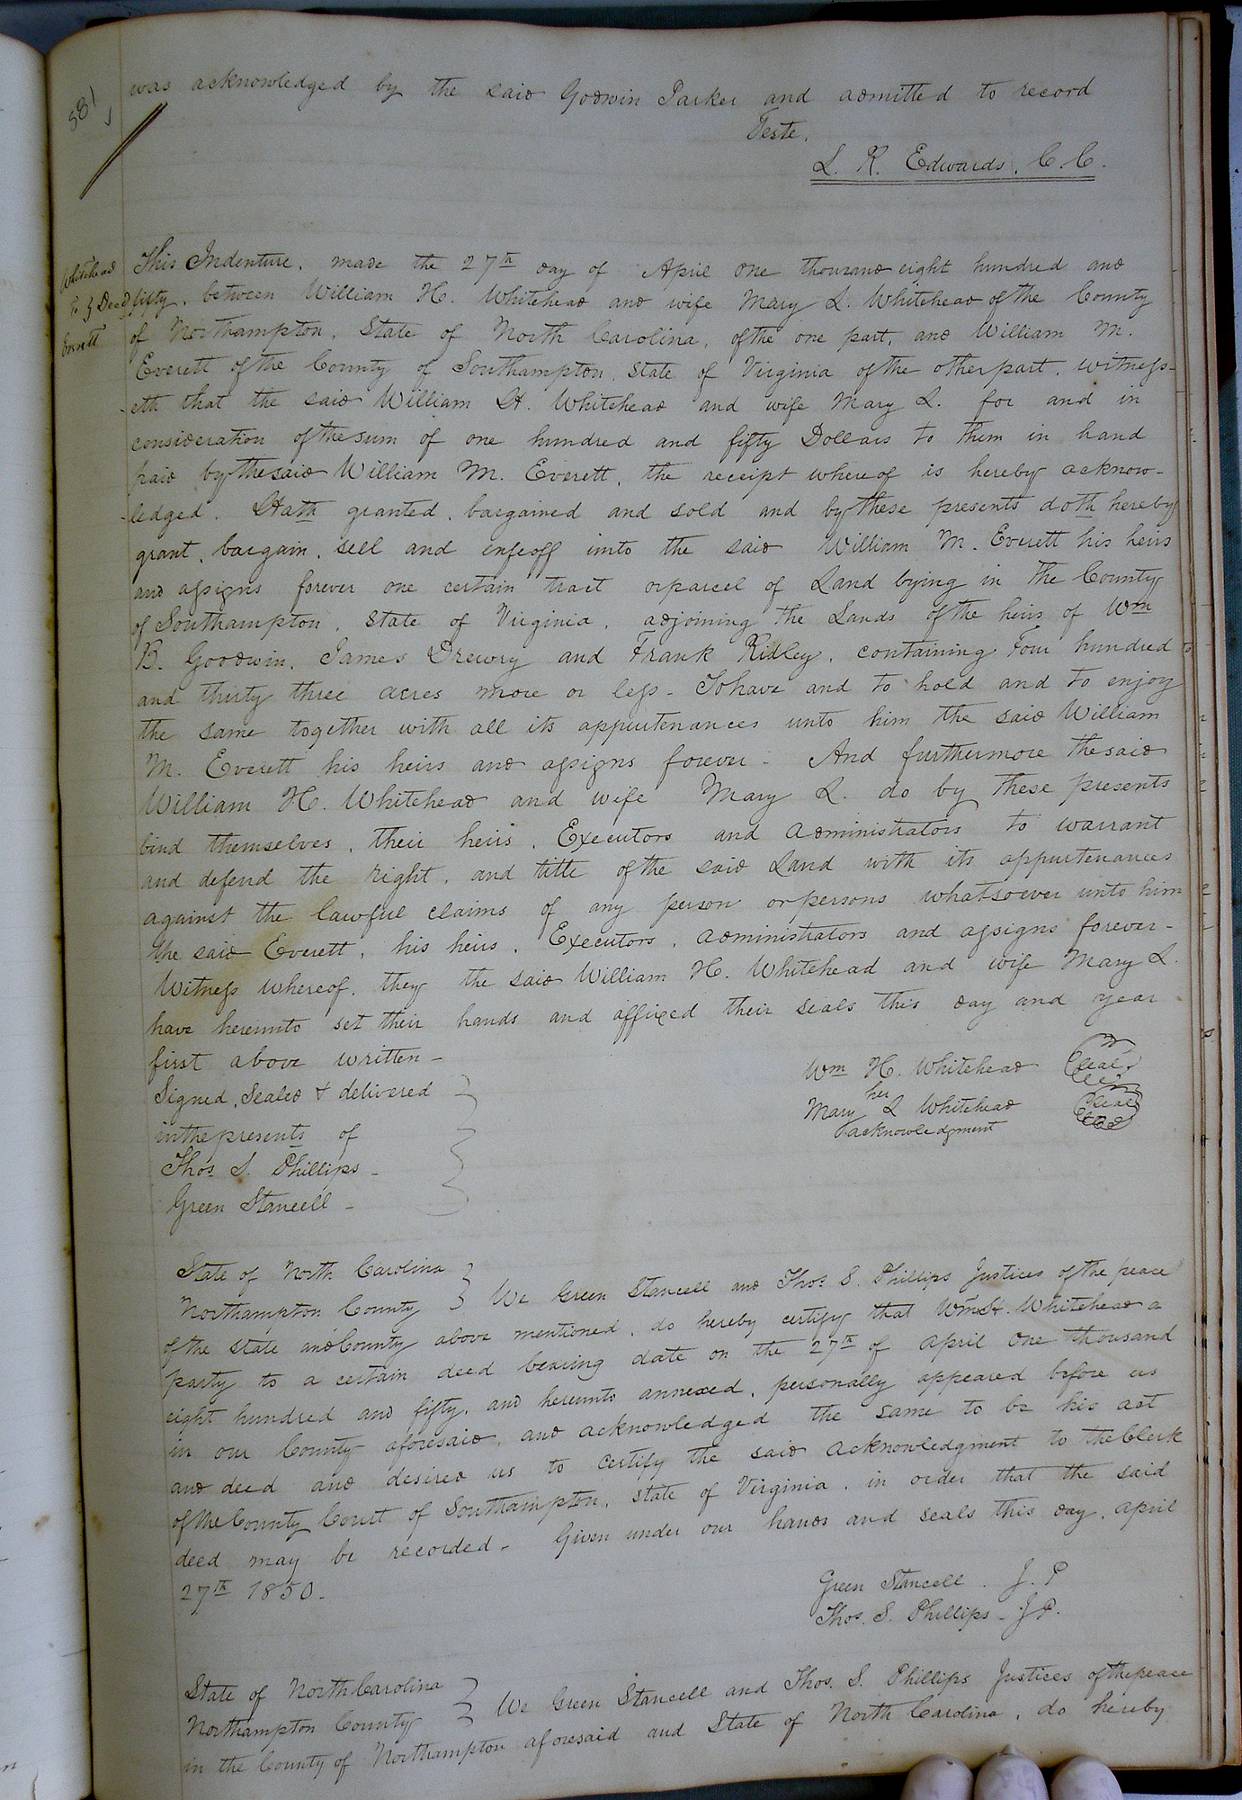 581
was acknowledged by the said Godwin Parker and admitted to record
Teste,
L. R. Edwards, C. C.
Whitehead
to } Deed
Everett
This Indenture, made the 27th day of April one thousand eight hundred and
fifty, between William H. Whitehead and wife Mary L. Whitehead of the County
of Northampton, State of North Carolina, of the one part, and William M.
Everett of the County of Southampton, State of Virginia of the other part, witness-
-eth that the said William H. Whitehead and wife Mary L. for and in
consideration of the sum of one hundred and fifty Dollars to them in hand
paid by the said William M. Everett, the receipt whereof is hereby acknow-
-ledged. Hath granted, bargained and sold and by these presents doth hereby
grant, bargain, sell and enfeoff unto the said William M. Everett his heirs
and assigns forever one certain tract or parcel of Land lying in the County
of Southampton, State of Virginia, adjoining the Lands of the heirs of Wm
B. Goodwin, James Drewry and Frank Ridley, containing Four hundred
and thirty three acres more or less - To have and to hold and to enjoy
the same together with all its appurtenances unto him the said William
M. Everett his heirs and assigns forever - And furthermore the said
William H. Whitehead and wife Mary L. do by these presents
bind themselves, their heirs, Executors and administrators to warrant
and defend the right, and title of the said Land with its appurtenances
against the lawful claims of any person or persons whatsoever unto him
the said Everett, his heirs, Executors, administrators and assigns forever -
Witness whereof, they the said William H. Whitehead and wife Mary L.
have hereunto set their hands and affixed their seals this day and year
first above written -
Signed, Sealed & delivered
in the presents of
Thos. S. Phillips -
Green Stancell -
Wm H. Whitehead Seal
her
Mary L Whitehead Seal
acknowledgment
State of North Carolina
Northampton County } We Green Stancell and Thos. S. Phillips Justices of the peace
of the state and County above mentioned, do hereby certify that Wm H. Whitehead a
party to a certain deed bearing date on the 27th of April One thousand
eight hundred and fifty, and hereunto annexed, personally appeared before us
in our County aforesaid, and acknowledged the same to be his act
and deed and desired us to certify the said acknowledgment to the Clerk
of the County Court of Southampton, state of Virginia, in order that the said
deed may be recorded - Given under our hands and seals this day, april
27th 1850.
Green Stancell. J. P
Thos. S. Phillips - J P.
State of North Carolina
Northampton County } We Green Stancell and Thos. S. Phillips Justices of the peace
in the County of Northampton aforesaid and State of North Carolina, do hereby